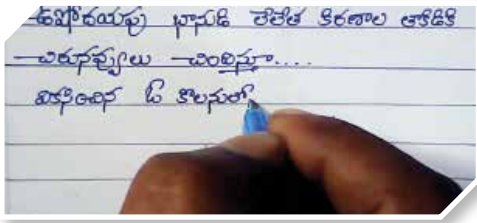 ఉషోదయపు భానుడి లేలేత కిరణాల తాకిడికి
చిరునవ్వులు చిందిస్తూ....
వికసించిన ఓ కొలనులో